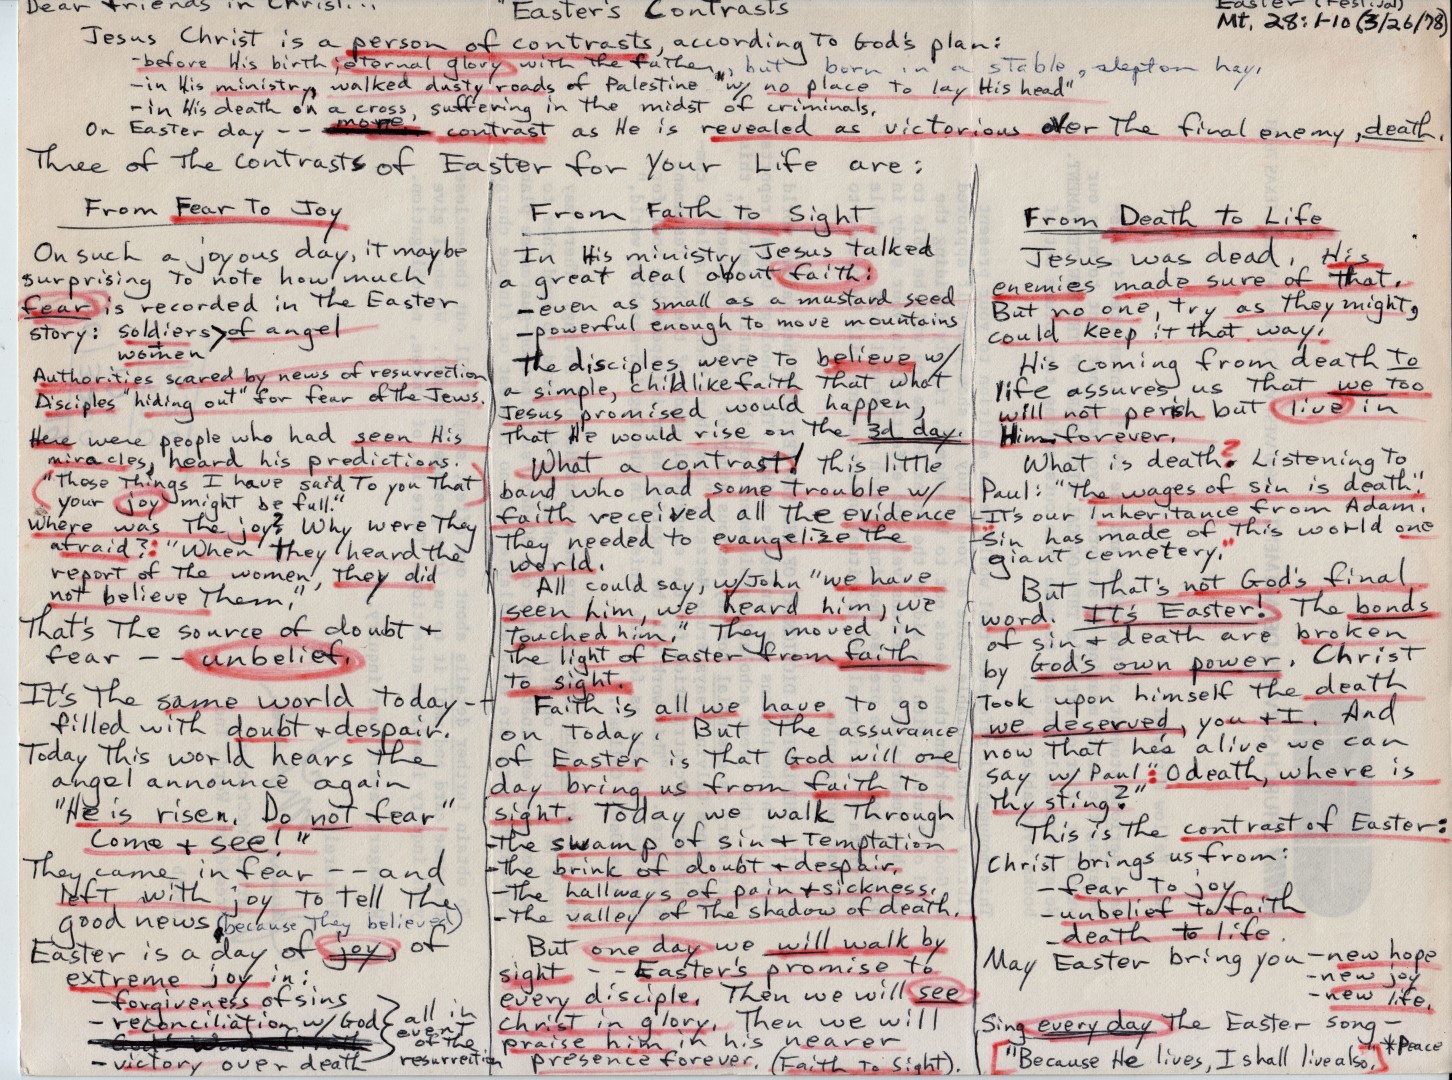 Dear Friends in Christ... "Easter's Contrasts Easter (Festival)
Mt. 28:1-10 (3/26/78)
Jesus Christ is a person of contrasts, according to God's plan:
-before His birth, eternal glory with the father, but born in a stable, slept on hay,
-in His ministry, walked dusty roads of Palestine "w/ no place to lay His head"
-in His death on a cross, suffering in the midst of criminals.
On Easter day -- more contrast as He is revealed as victorious over the final enemy, death.
Three of the contrasts of Easter for Your Life are:
From Fear To Joy
On such a joyous day, it may be
surprising to note how much
fear is recorded in the Easter
story: soldiers > of angel
women
Authorities scared by news of resurrection
Disciples "hiding out" for fear of the Jews.
Here were people who had seen His
miracles, heard his predictions.
"These Things I have said To you That
your joy might be full."
Where was the joy? Why were They
afraid?: "When they heard the
report of the women, they did
not believe Them,"
That's the source of doubt +
fear -- unbelief.
It's the same world today -
filled with doubt + despair.
Today this world hears the
angel announce again
"He is risen. Do not fear"
Come + see!"
They came in fear -- and
left with joy to tell the
good news (because they believed)
Easter is a day of joy, of
extreme joy in:
-forgiveness of sins
-reconciliation w/ God
-victory over death
all in
event
of the
resurrection
From Faith to Sight
In His ministry Jesus talked
a great deal about faith:
-even as small as a mustard seed
-powerful enough to move mountains
The disciples were to believe w/
a simple, childlike faith that what
Jesus promised would happen,
that He would rise on the 3d day.
What a contrast! This little
band who had some trouble w/
faith received all the evidence
they needed to evangelize the
world.
All could say, w/ John "we have
seen him, we heard him, we
touched him." They moved in
the light of Easter from faith
to sight.
Faith is all we have to go
on today. But the assurance
of Easter is that God will one
day bring us from faith to
sight. Today we walk through
-the swamp of sin + temptation
-the brink of doubt + despair.
-the hallways of pain + sickness.
-the valley of the shadow of death.
But one day we will walk by
sight -- Easter's promise to
every disciple. Then we will see
Christ in glory. Then we will
praise him in his nearer
presence forever. (Faith to Sight).
From Death to Life
Jesus was dead. His
enemies made sure of that.
But no one, try as they might,
could keep it that way.
His coming from death to
life assures us that we too
will not perish but live in
Him forever.
What is death? Listening to
Paul: "The wages of sin is death".
-It's our inheritance from Adam.
-Sin has made of this world one
giant cemetery."
But that's not God's final
word. It's Easter! The bonds
of sin + death are broken
by God's own power. Christ
took upon himself the death
we deserved, you + I. And
now that he's alive we can
say w/ Paul: "O death, where is
thy sting?"
This is the contrast of Easter:
Christ brings us from:
-fear to joy
-unbelief to faith
-death to life.
May Easter bring you -new hope
-new joy
-new life.
Sing every day the Easter song -
["Because He lives, I shall live also."] *Peace